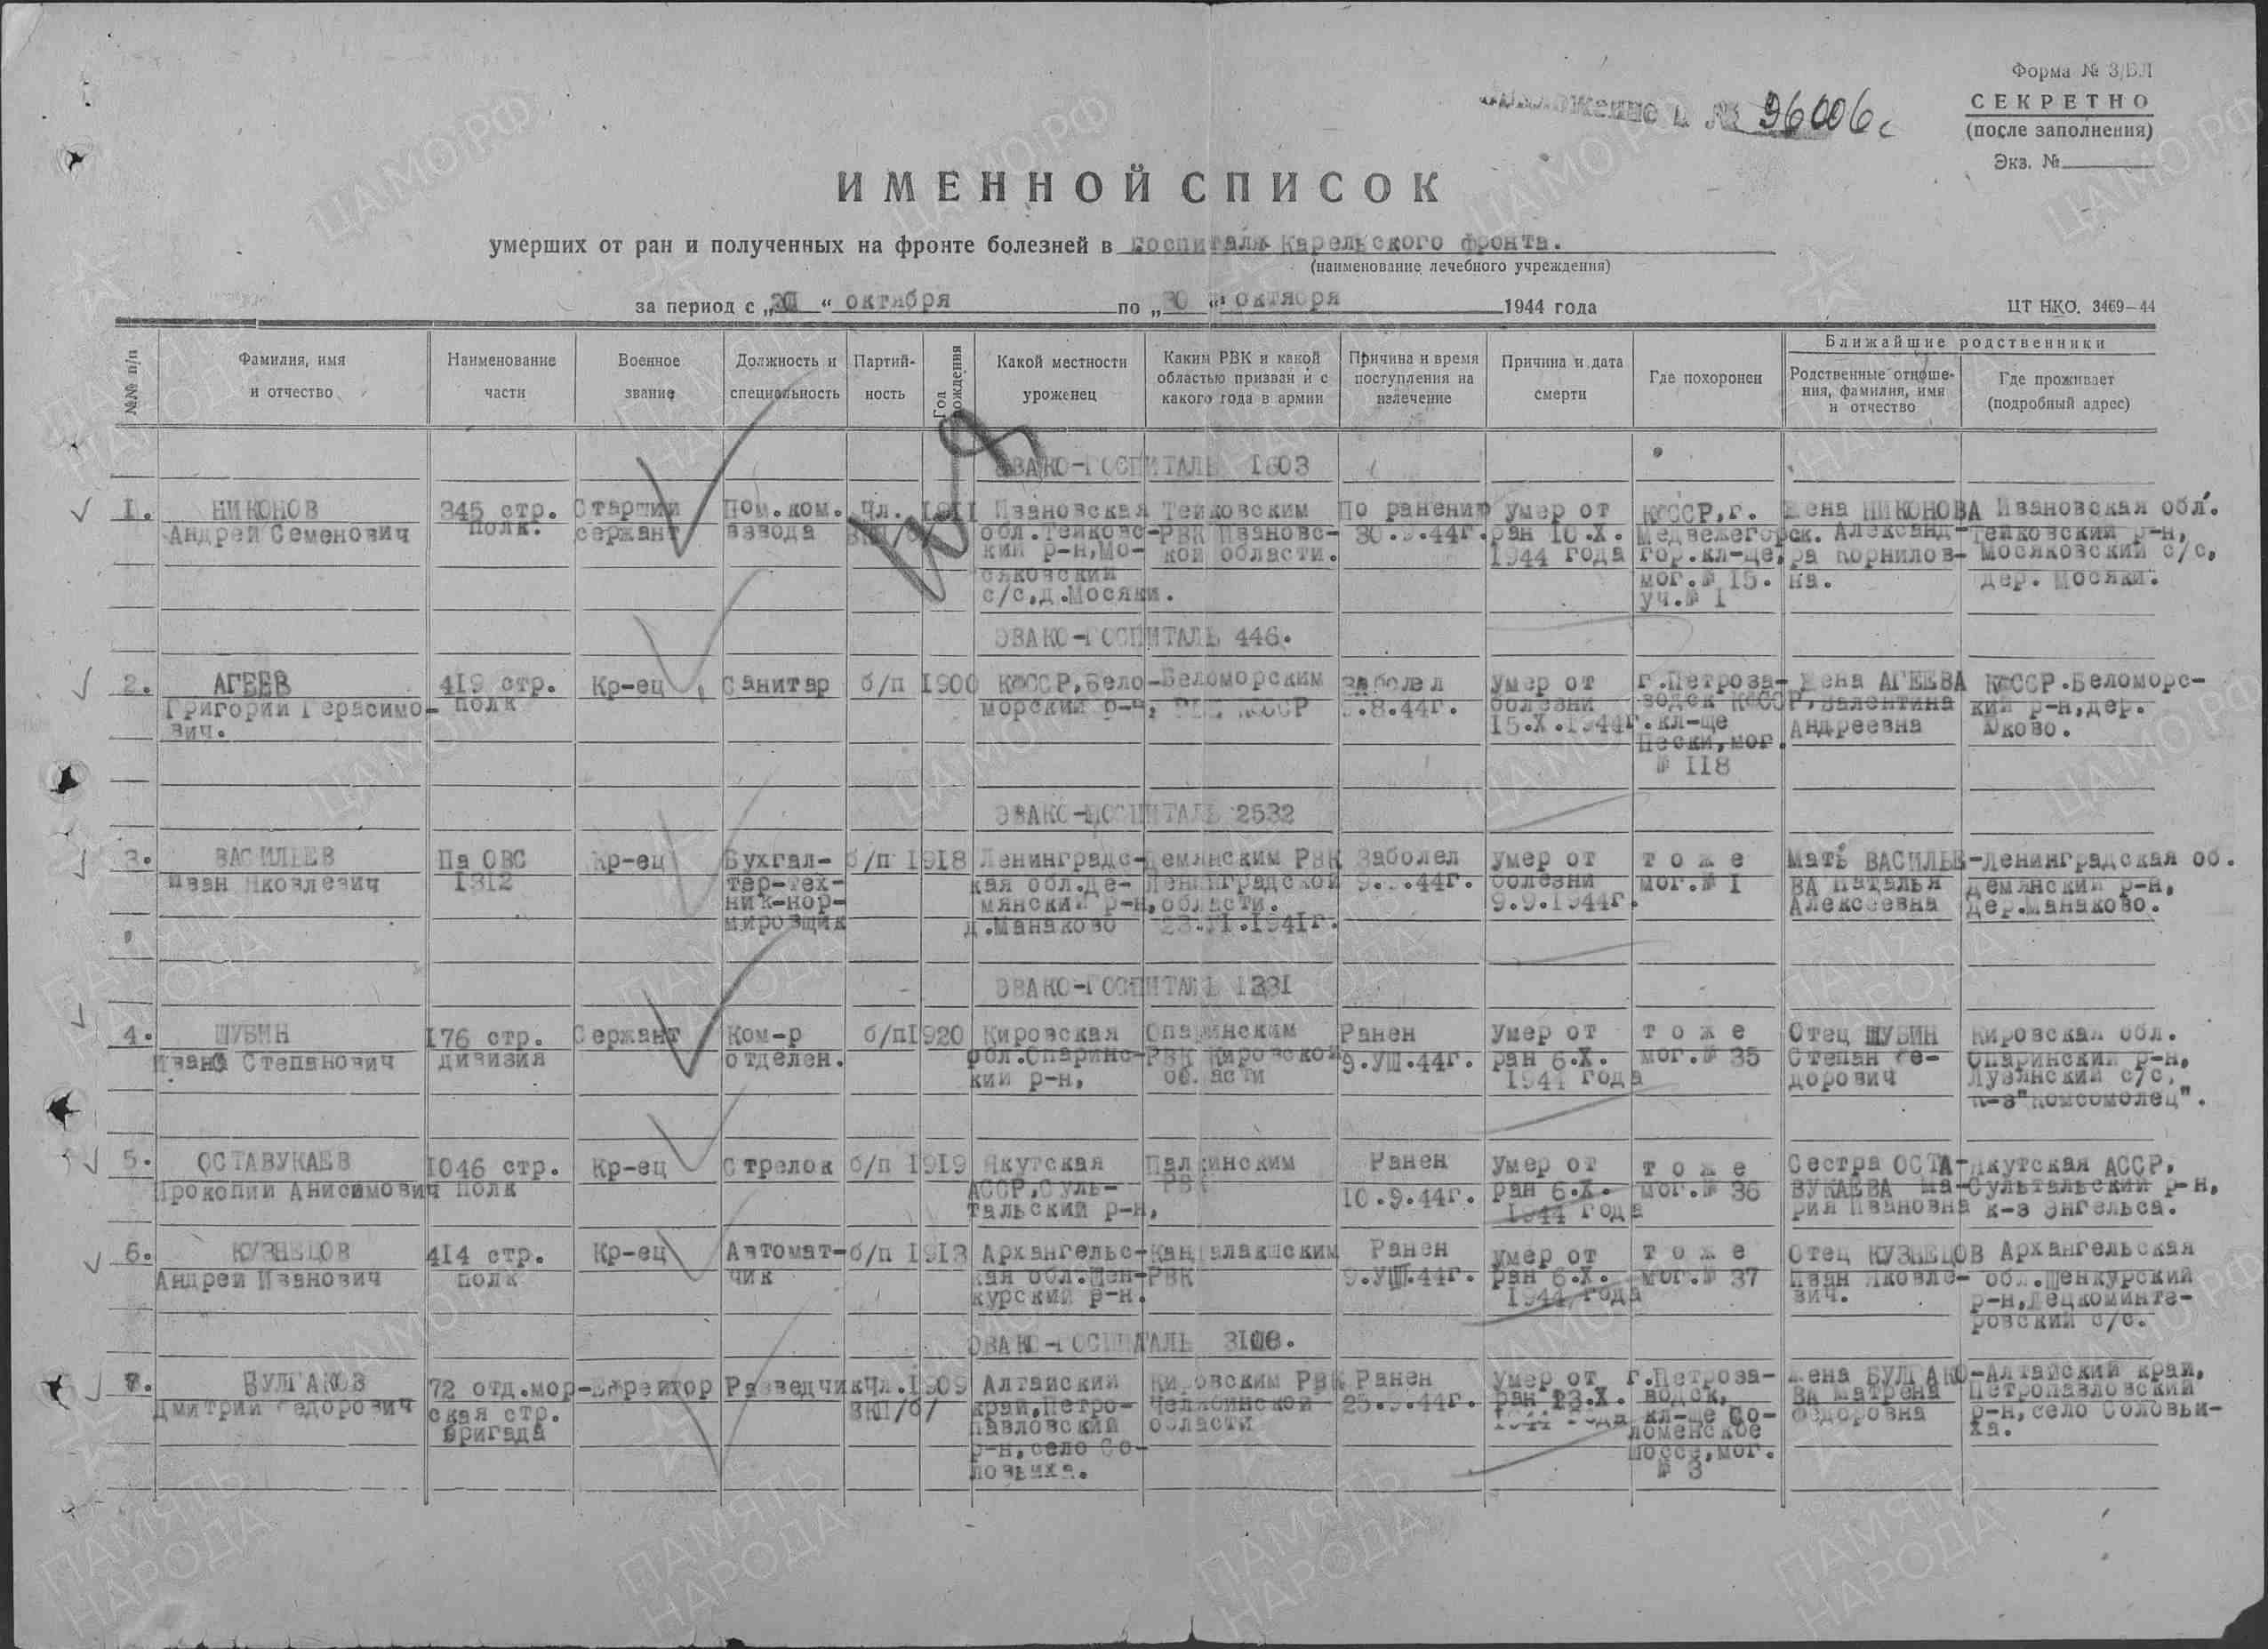 Форма № 3/БЛ
СЕКРЕТНО
(после заполнения)
Экз. №
№ 96006с
ИМЕННОЙ СПИСОК
умерших от ран и полученных на фронте болезней в госпиталя Карельского фронта.
(наименование лечебного учреждения)
за период с „ “ октября по „30 “ октября 1944 года
ЦТ НКО. 3469—44
№№ п/п
Фамилия, имя
и отчество
Наименование
части
Военное
звание
Должность и
специальность
Партий-
ность
Год
рождения
Какой местности
уроженец
Каким РВК и какой
областью призван и с
какого года в армии
Причина и время
поступления на
излечение
Причина и дата
смерти
Где похоронен
Ближайшие родственники
Родственные отноше-
ния, фамилия, имя
и отчество
Где проживает
(подробный адрес)
ЭВАКО-ГОСПИТАЛЬ 1603
1. НИКОНОВ
Андрей Семенович
345 стр.
полк.
Старший
сержант
Пом.ком.
взвода
Чл.
ВКП/б/
1911
Ивановская
обл.Тейковс-
кий р-н,Мо-
сяковский
с/с,д.Мосяки.
Тейковским
РВК Ивановс-
кой области.
По ранению
30.9.44г.
умер от
ран 10.X.
1944 года
КФССР,г.
Медвежегорск.
гор.кл-ще,
мог.№ 15.
уч.№ 1
Жена НИКОНОВА
Александ-
ра Корнилов-
на.
Ивановская обл.
Тейковский р-н,
Мосяковский с/с,
дер. Мосяки.
ЭВАКО-ГОСПИТАЛЬ 446.
2. АГЕЕВ
Григорий Герасимо-
вич.
419 стр.
полк
Кр-ец
Санитар
б/п
1900
КФССР,Бело-
морский р-н,
Беломорским
РВК КФССР
заболел
.8.44г.
умер от
болезни
15.X.1944г.
г.Петроза-
водск КФССР,
кл-ще
Пески,мог.
№ 118
Жена АГЕЕВА
Валентина
Андреевна
КФССР.Беломорс-
кий р-н,дер.
Юково.
ЭВАКО-ГОСПИТАЛЬ 2532
3. ВАСИЛЬЕВ
Иван Яковлевич
Па ОВС
1312
Кр-ец
Бухгал-
тер-тех-
ник-нор-
мировщик
б/п
1918
Ленинградс-
кая обл.Де-
мянский р-н,
д.Манаково
Демянским РВК
Ленинградской
области.
23.VI.1941г.
Заболел
9. .44г.
умер от
болезни
9.9.1944г.
то же
мог.№ 1
Мать ВАСИЛЬЕ-
ВА Наталья
Алексеевна
Ленинградская об.
Демянский р-н,
дер.Манаково.
ЭВАКО-ГОСПИТАЛЬ 1331
4. ШУБИН
Иван Степанович
176 стр.
дивизия
Сержант
Ком-р
отделен.
б/п
1920
Кировская
обл.Опаринс-
кий р-н,
Опаринским
РВК Кировской
области
Ранен
9.УШ.44г.
умер от
ран 6.X.
1944 года
то же
мог.№ 35
Отец ШУБИН
Степан Фе-
дорович
Кировская обл.
Опаринский р-н,
Лузянский с/с,
к-з"Комсомолец".
5. ОСТАВУКАЕВ
Прокопий Анисимович
1046 стр.
полк
Кр-ец
Стрелок
б/п
1919
Якутская
АССР,Суль-
тальский р-н,
Палкинским
РВК
Ранен
10.9.44г.
умер от
ран 6.X.
1944 года
то же
мог.№ 36
Сестра ОСТА-
ВУКАЕВА Ма-
рия Ивановна
Якутская АССР,
Сультальский р-н,
к-з Энгельса.
6. КУЗНЕЦОВ
Андрей Иванович
414 стр.
полк
Кр-ец
Автомат-
чик
б/п
1913
Архангельс-
кая обл.Шен-
курский р-н.
Кандалакшским
РВК
Ранен
9.УШ.44г.
умер от
ран 6.X.
1944 года
то же
мог.№ 37
Отец КУЗНЕЦОВ
Иван Яковле-
вич.
Архангельская
обл.Шенкурский
р-н,Шецкоминте-
ровский с/с.
ЭВАКО-ГОСПИТАЛЬ 3108.
7. БУЛГАКОВ
Дмитрий Федорович
72 отд.мор-
ская стр.
бригада
Ефрейтор
Разведчик
Чл.
ВКП/б/
1909
Алтайский
край,Петро-
павловский
р-н,село Со-
ловьиха.
Кировским РВК
Челябинской
области
Ранен
25.9.44г.
умер от
ран 13.X.
1944 года
г.Петроза-
водск,
кл-ще Со-
ломенское
шоссе,мог.
№ 3
Жена БУЛГАКО-
ВА Матрена
Федоровна
Алтайский край,
Петропавловский
р-н,село Соловьи-
ха.